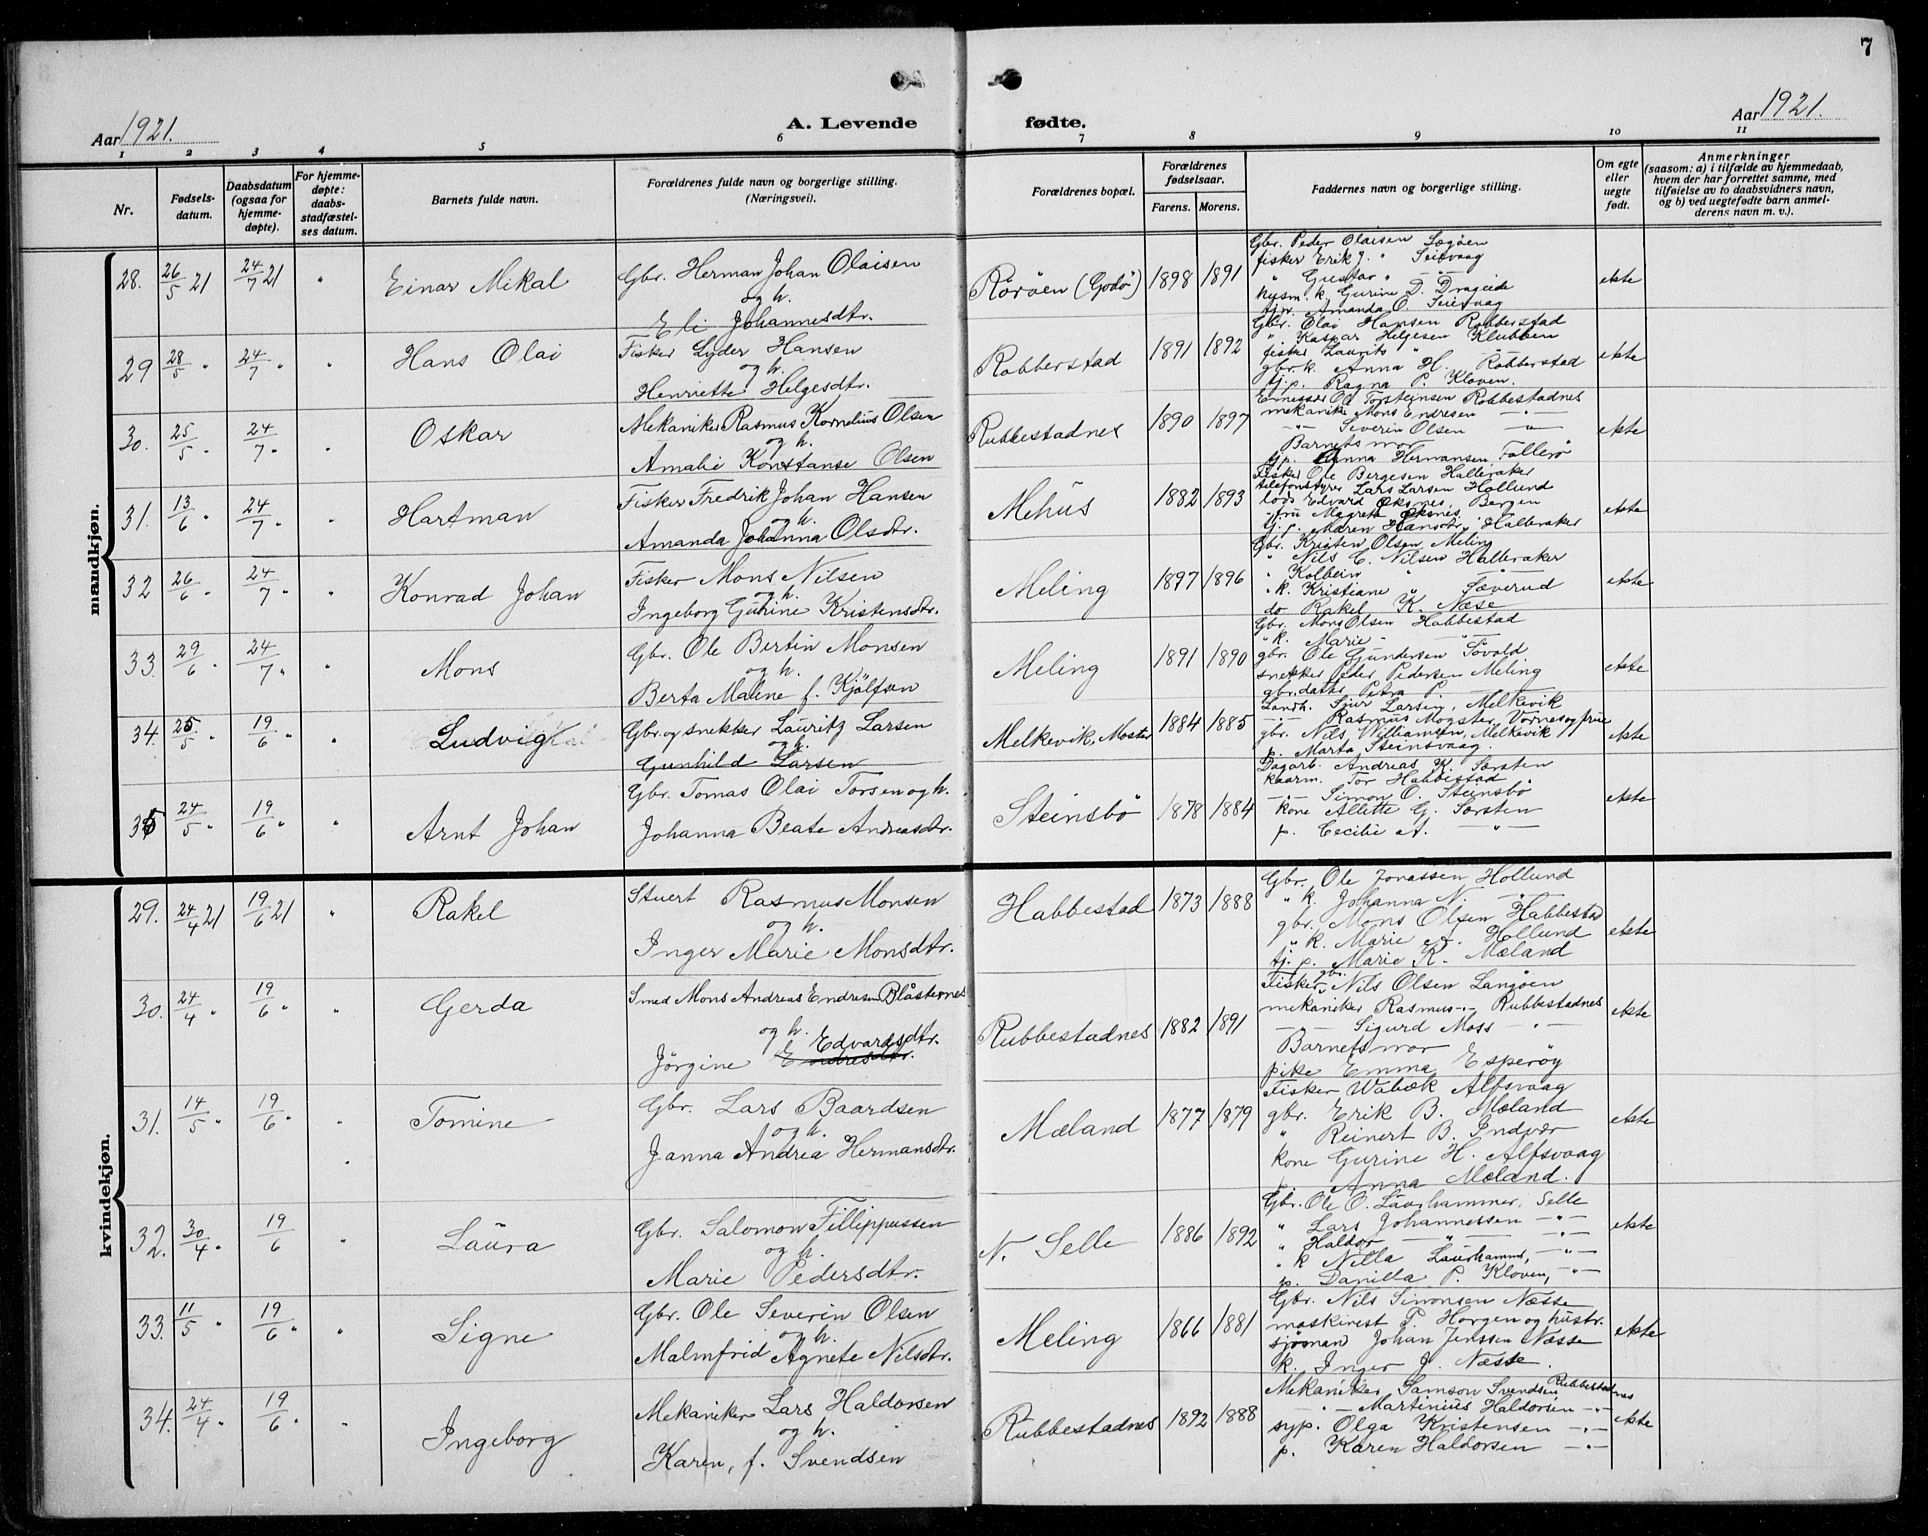 7
Aar 1921.
A. Levende fødte.
Aar 1921.
1 2 3 4 5 6 7 8 9 10 11
Nr.
Fødsels-
datum.
Daabsdatum
(ogsaa for
hjemme-
døpte).
For hjemme-
døpte:
daabs-
stadfæstel-
ses datum.
Barnets fulde navn.
Forældrenes fulde navn og borgerlige stilling.
(Næringsvei).
Forældrenes bopæl.
Forældrenes
fødselsaar.
Farens. Morens.
Faddernes navn og borgerlige stilling.
Om egte
eller
uegte
født.
Anmerkninger
(saasom: a) i tilfælde av hjemmedaab,
hvem der har forrettet samme, med
tilføielse av to daabsvidners navn,
og b) ved uegtefødte barn anmel-
derens navn m. v.).
mandkjøn.
28. 26/5 21 24/7 21 " Einar Mikal
Gbr. Herman Johan Olaisen
og h.
Eli Johannesdtr.
Rörøen (Godø) 1898 1891
Gbr. Peder Olaisen Sægöen
fisker Erik J. " Seivaag
" Gustav " "
husm. k. Gurine D. Drageide
tj.p. Amanda O. Seievaag
ekte
29 28/5 " 24/7 " " Hans Olai
Fisker Lyder Hansen
og h.
Henriette Helgesdtr.
Robberstad 1891 1892
Gbr. Olai Hansen Robberstad
" Kaspar Helgesen Klubben
fisker Laurits " "
gbr.k. Anna H. Robberstad
tj.p. Ragna P. Kloven.
ekte
30. 25/5 " 24/7 " " Oskar
Mekaniker Rasmus Kornelius Olsen
og h.
Amalie Konstanse Olsen
Rubbestadnes 1890 1897
Ole Torsteinsen Robbestadnes
mekanike Mons Endresen -"-
-"- Severin Olsen -"-
Barnets mor
tjp. Anna Hermansen Follerö
ekte
31. 13/6 " 24/7 " " Hartman
Fisker Fredrik Johan Hansen
og h.
Amanda Johanna Olsdtr.
Mehus 1882 1893
Fisker Ole Bergesen Halleraker
telefonstyrer Lars Larsen Hollund
lods Edvard Öksnes, Bergen
fru Magreta Öksnes "
tj.p. Maren Hansdtr. Halleraker
ekte
32 26/6 " 24/7 " " Konrad Johan
Fisker Mons Nilsen
og h.
Ingeborg Gurine Kristensdtr.
Meling 1897 1896
Gbr. Kristen Olsen Meling
" Nils C. Nilsen Halleraker
" Kolbein " "
" k. Kristiane " Sæverud
do Rakel K. Næse
ekte
33. 29/6 " 24/7 " " Mons
Gbr. Ole Bertin Monsen
og h.
Berta Maline f. Kjölfsen
Meling 1891 1890
Gbr. Mons Olsen Habbestad
" k. Marie - "
gbr. Ole Gundersen Tovold
snekker Peder Pedersen Meling
gbr.datter Petra P. "
ekte
34. 25/5 " 19/6 " " Ludvig
Gbr. og snekker Lauritz Larsen
og h.
Gunhild Larsen
Melkevik, Moster 1884 1885
Landh. Sjur Larsen, Melkevik
-"- Rasmus Mogster, Vornes og frue
gbr. Nils Williamsen, Melkevik
p. Marta Steinsvaag.
ekte
35 24/5 " 19/6 " " Arnt Johan
Gbr. Tomas Olai Torsen og h.
Johanna Beate Andreasdtr.
Steinsbö 1878 1884
Dagarb. Andreas K. Særsten
kaarm. Tor Habbestad
-"- Simon O. Steinsbö
kone Allette G. Særsten
p. Cecilie A. -"-
ekte
kvindekjøn.
29. 24/4 21 19/6 21 " Rakel
Stuert Rasmus Monsen
og h.
Inger Marie Monsdtr.
Habbestad 1873 1888
Gbr. Ole Jonassen Hollund
" k. Johanna N. -"-
gbr. Mons Olsen Habbestad
" k. Marie A. Hollund
tj. p. Marie K. Mæland
ekte
30. 24/4 " 19/6 " " Gerda
Smed Mons Andreas Endresen Blåsternes
og h. Edvardsdtr.
Jörgine Endresdtr.
Rubbestadnes 1882 1891
Fisker, gbr. Nils Olsen Langöen
mekaniker Rasmus -"- Rubbestadnes
-"- Sigurd Moss -"-
Barnets mor
pike Emma Esperöy
ekte
31. 14/5 " 19/6 " " Tomine
Gbr. Lars Baardsen
og h.
Janna Andrea Hermansdtr.
Mæland 1877 1879
Fisker Wabæk Alfsvaag
gbr. Erik B. Mæland
" Reinert B. Indvær
kone Gurine H. Alfsvaag
p. Anna Mæland.
ekte
32. 30/4 " 19/6 " Laura
Gbr. Salomon Fillippussen
og h.
Marie Pedersdtr.
N. Selle 1886 1892
Gbr. Ole O. Laurhammer, Selle
" Lars Johannessen -"-
" Haldor -"- -"-
" k Nilla Laurhammer, -"-
p. Danilla P. Kloven, -"-
ekte
33. 11/5 " 19/6 " " Signe
Gbr. Ole Severin Olsen
og h.
Malmfrid Agnete Nilsdtr.
Meling 1866 1881
Gbr. Nils Simonsen Næsse
maskinest P. Horgen og hustr.
sjöman Johan Jenssen Næsse
k. Inger J. Næsse.
ekte
34. 24/4 " 19/6 " " Ingeborg
Mekaniker Lars Haldorsen
og h.
Karen, f. Svendsen
Rubbestadnes 1892 1888
Mekaniker Samson Svendsen Rubbestadnes
-"- Martinius Haldorsen -"-
syp. Olga Kristensen -"-
p. Karen Haldorsen -"-
ekte